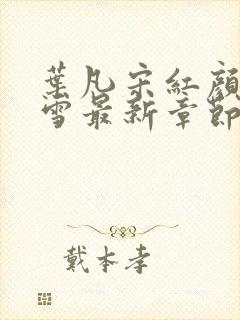 葉凡宋紅顏
雪最新章節
戴本孝